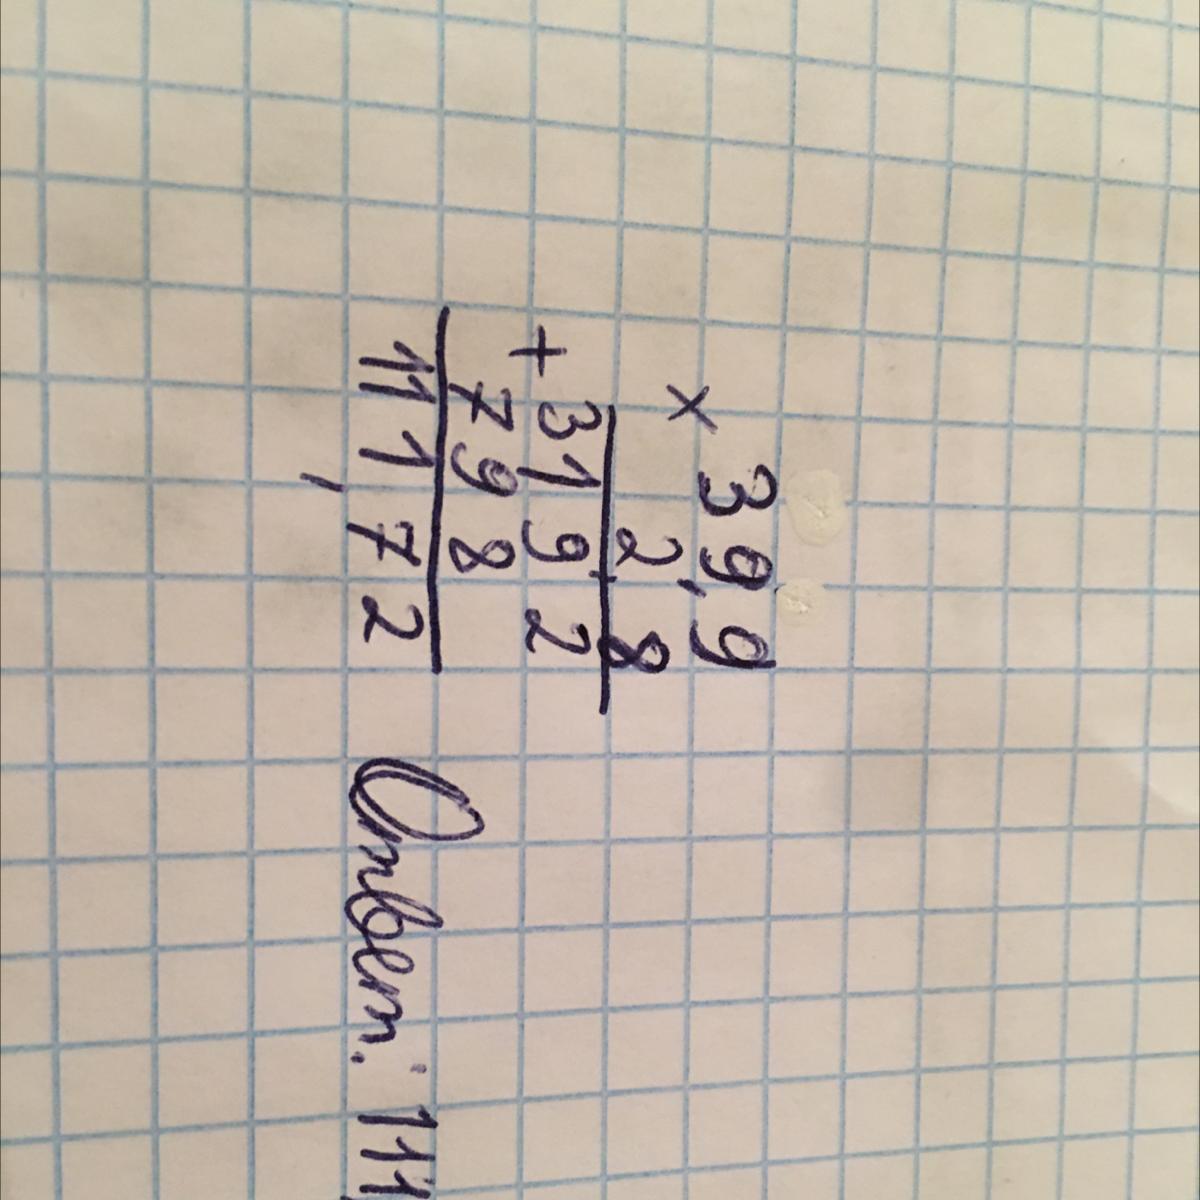 × 39,9
2,8
+ 3192
798
111,72
Ответ: 111,